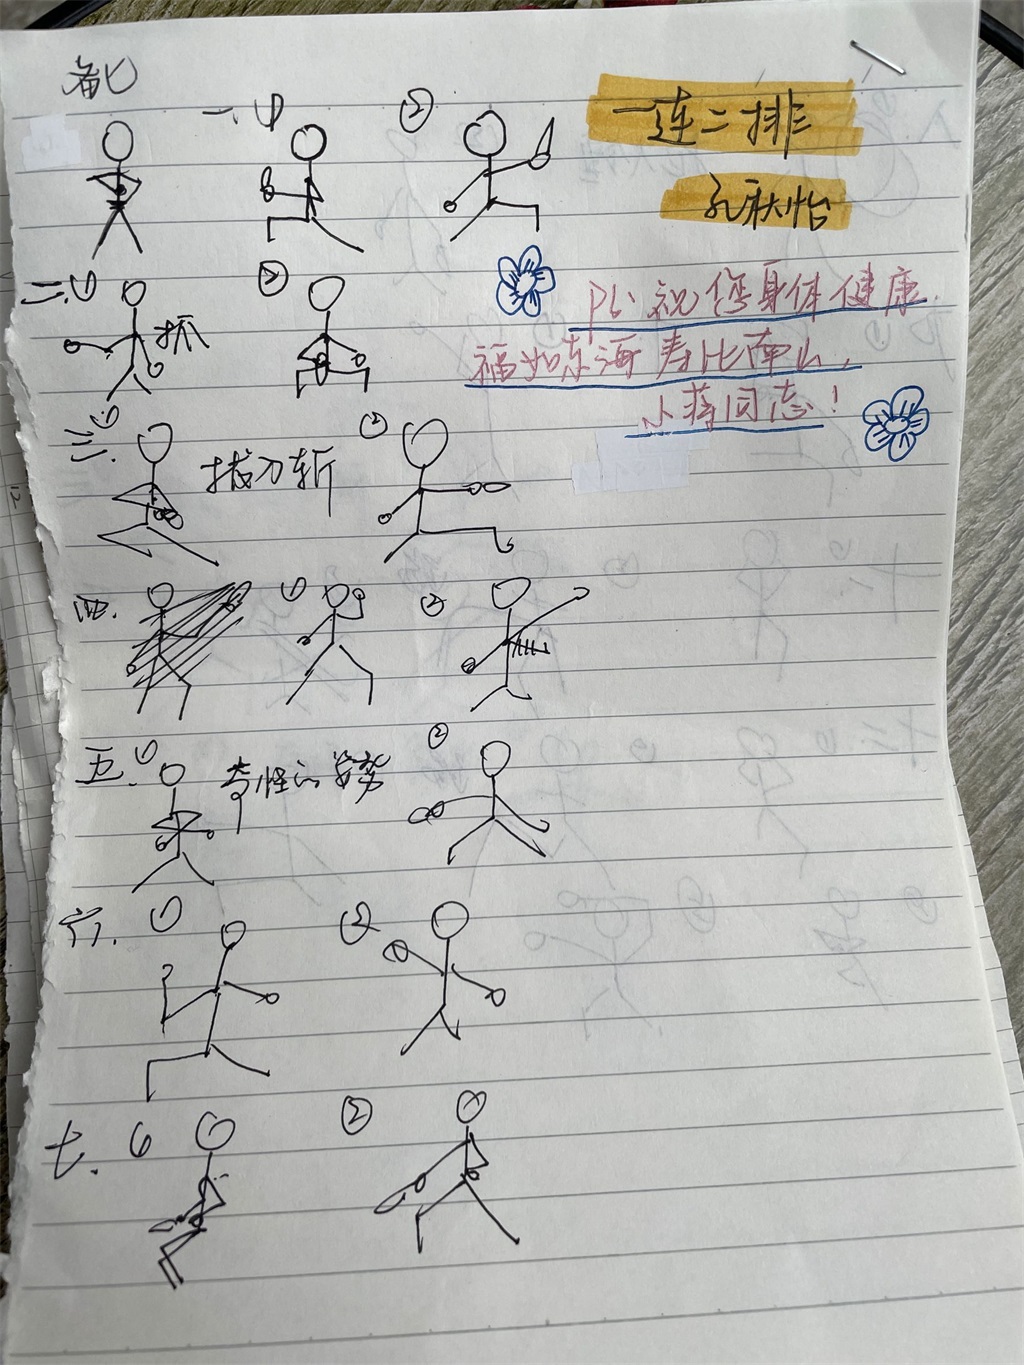 备匕
一、① ②
一连二排
孔秋怡
二、① 抓 ②
PS: 祝您身体健康
福如东海 寿比南山，
小蒋同志！
三、① 拔刀斩 ②
四、 ① ②
五、① 奇怪的姿势 ②
六、① ②
七、① ②